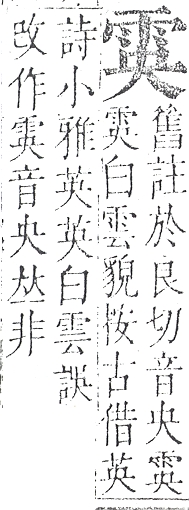 雵
舊註於良切音央雵
雵白雲貌按古借英
詩小雅英英白雲誤
改作雵音央𠀤非